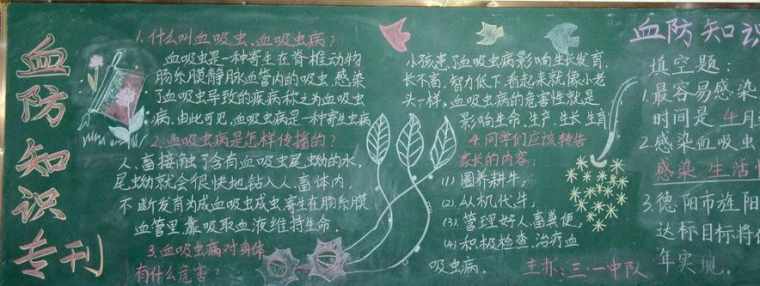 血防知识专刊
1.什么叫血吸虫、血吸虫病?
血吸虫是一种寄生在脊椎动物
肠系膜静脉血管内的吸虫,感染
了血吸虫导致的疾病称之为血吸虫
病,由此可见,血吸虫病是一种寄生虫病
2.血吸虫病是怎样传播的?
人、畜接触了含有血吸虫尾蚴的水,
尾蚴就会很快地钻入人、畜体内,
不断发育为成血吸虫成虫寄生在肠系膜
血管里,靠吸取血液维持生命.
3.血吸虫病对身体
有什么危害?
小孩患了血吸虫病影响生长发育,
长不高,智力低下,看起来就像小老
头一样,血吸虫病的危害性就是
影响生命、生产、生长、生育
4.同学们应该转告
家长的内容:
(1)圈养耕牛;
(2).从机代牛;
(3).管理好人、畜粪便;
(4)积极检查、治疗血
吸虫病。
主办:三.一中队
血防知识
填空题:
1.最容易感染
时间是 4月
2.感染血吸虫
感染 生活
3.德阳市旌阳
达标目标将
年实现。